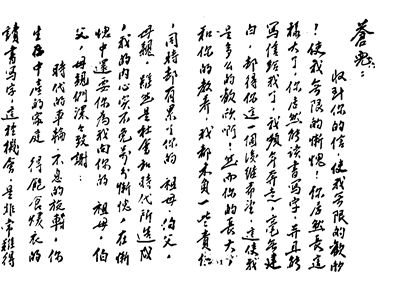 蓉兒：
收到你的信，使我無限的歡欣
！使我無限的慚愧！你居然長這
樣大了，你居然能讀書寫字，并且能
寫信給我了，我幾年奔走，毫無建
白，都待你這一個後繼希望，這使我
是多么的歡欣啊！然而你的長大
和你的教养，我都未負一些責任
，同時却有累了你的 祖母，伯父，
母親，雖然是社會和時代所造成
，我的内心實不免萬分慚愧，在慚
愧中還要你為我向你的 祖母，伯
父，母親們深々致謝！
時代的車輪 不息的旋轉，你
生在中產的家庭 得飽食煖衣的
讀書寫字，這種機會，是非常難得